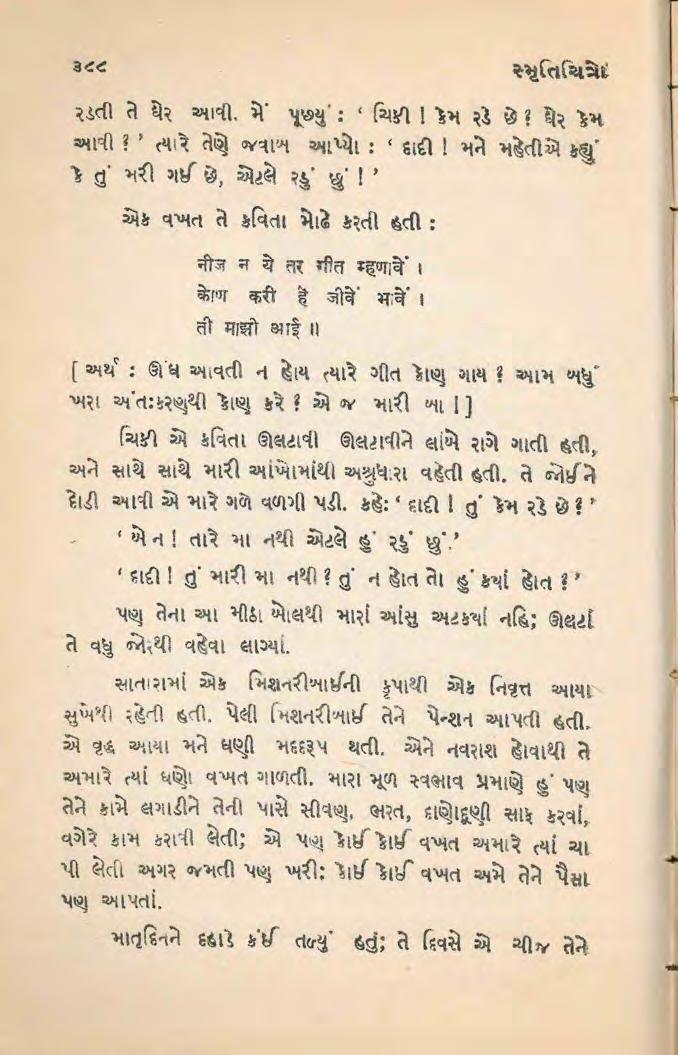 ૩૮૮ સ્મૃતિચિત્રો
રડતી તે ઘેર આવી. મેં પૂછ્યું : ‘ ચિકી ! કેમ રડે છે ? ઘેર કેમ
આવી ? ’ ત્યારે તેણે જવાબ આપ્યો : ‘ દાદી ! મને મહેતીએ કહ્યું
કે તું મરી ગઈ છે, એટલે રડું છું ! ’
એક વખત તે કવિતા મોઢે કરતી હતી :
नीज न ये तर गीत म्हणावें ।
कोण करी हें जीवें भावें ।
ती माझी आई ॥
[ અર્થ : ઊંઘ આવતી ન હોય ત્યારે ગીત કોણ ગાય ? આમ બધું
ખરા અંતઃકરણથી કોણ કરે ? એ જ મારી બા ! ]
ચિકી એ કવિતા ઊલટાવી ઊલટાવીને લાંબે રાગે ગાતી હતી,
અને સાથે સાથે મારી આંખોમાંથી અશ્રુધારા વહેતી હતી. તે જોઈને
દોડી આવી એ મારે ગળે વળગી પડી. કહે: ‘ દાદી ! તું કેમ રડે છે ? ’
‘ બેન ! તારે મા નથી એટલે હું રડું છું.’
‘ દાદી ! તું મારી મા નથી ? તું ન હોત તો હું ક્યાં હોત ? ’
પણ તેના આ મીઠા બોલથી મારાં આંસુ અટક્યાં નહિ; ઊલટાં
તે વધુ જોરથી વહેવા લાગ્યાં.
સાતારામાં એક મિશનરીબાઈની કૃપાથી એક નિવૃત્ત આયા
સુખેથી રહેતી હતી. પેલી મિશનરીબાઈ તેને પેન્શન આપતી હતી.
એ વૃદ્ધ આયા મને ઘણી મદદરૂપ થતી. એને નવરાશ હોવાથી તે
અમારે ત્યાં ઘણો વખત ગાળતી. મારા મૂળ સ્વભાવ પ્રમાણે હું પણ
તેને કામે લગાડીને તેની પાસે સીવણ, ભરત, દાણોદૂણી સાફ કરવાં,
વગેરે કામ કરાવી લેતી; એ પણ કોઈ કોઈ વખત અમારે ત્યાં ચા
પી લેતી અગર જમતી પણ ખરી; કોઈ કોઈ વખત અમે તેને પૈસા
પણ આપતાં.
માતૃદિનને દહાડે કંઈ તળ્યું હતું; તે દિવસે એ ચીજ તેને